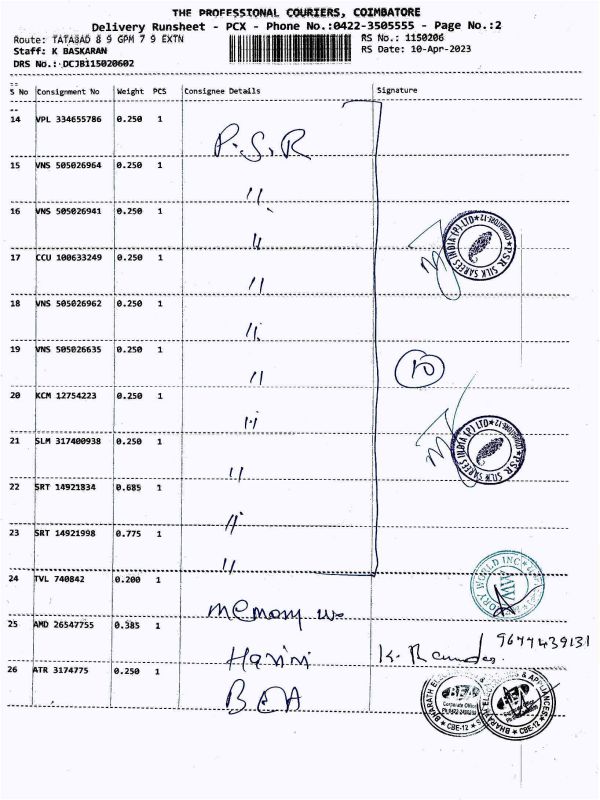 THE PROFESSIONAL COURIERS, COIMBATORE
Delivery Runsheet - PCX - Phone No.:0422-3505555 - Page No.:2
Route: TATABAD 8 9 GPM 7 9 EXTN RS No.: 1150206
Staff: K BASKARAN RS Date: 10-Apr-2023
DRS No.: DCJB115020602
S No Consignment No Weight PCS Consignee Details Signature
14 VPL 334655786 0.250 1 P.S.R
15 VNS 505026964 0.250 1 "
16 VNS 505026941 0.250 1 "
17 CCU 100633249 0.250 1 "
18 VNS 505026962 0.250 1 "
19 VNS 505026635 0.250 1 " 10
20 KCM 12754223 0.250 1 "
21 SLM 317400938 0.250 1 "
22 SRT 14921834 0.685 1 "
23 SRT 14921998 0.775 1 "
24 TVL 740842 0.200 1 Memory
25 AMD 26547755 0.385 1 Harini 9677439131
26 ATR 3174775 0.250 1
P.S.R SILK SAREES INDIA (P) LTD COIMBATORE-12
P.S.R SILK SAREES INDIA (P) LTD COIMBATORE-12
WORLD INC
MW
BHARATH
CBE-12
BHARATH & APPLIANCES
CBE-12